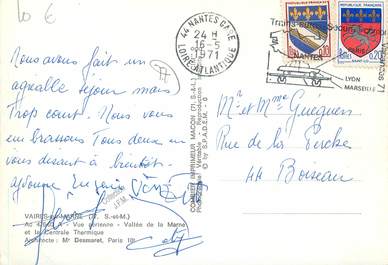 10 €
44 NANTES GARE
24 H
16-5
1971
LOIRE ATLANTIQUE
NANTES
LYON
MARSEILLE
0,20
Nous avons fait un
agréable séjour mais
Trop court. Nous vous
embrassons Tous deux en
vous disant à bientôt.
77
COMBIER IMPRIMEUR MACON (71. S.-&-L.)
© by S.P.A.D.E.M.
Mr et Mme Gueguen
Rue de la Perche
44 Boiseau
VAIRES-sur-MARNE (77. S.-et-M.)
Vue aérienne - Vallée de la Marne
et la Centrale Thermique
Architecte: Mr Desmaret, Paris